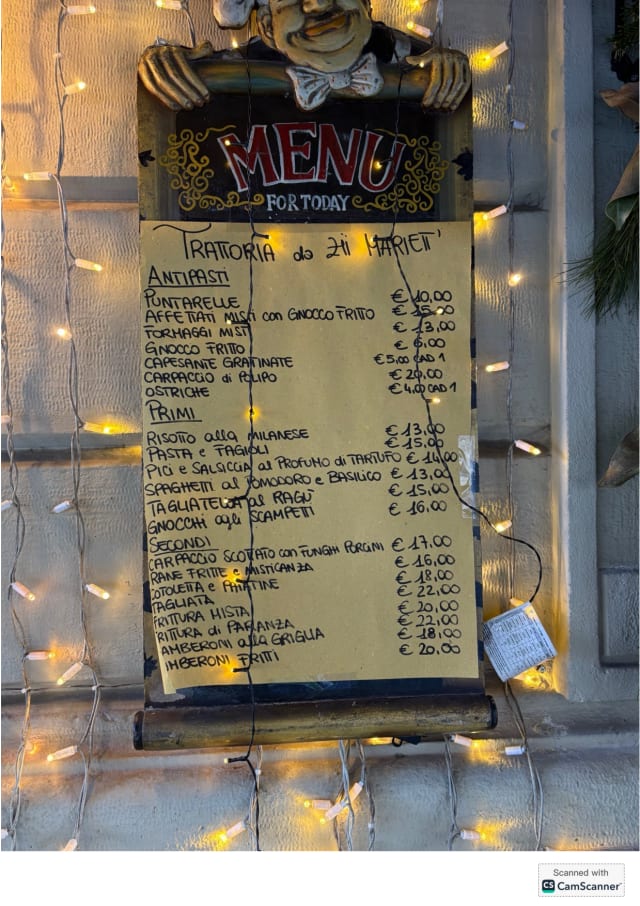 MENU
FOR TODAY
TRATTORIA da ZII MARIETT'
ANTIPASTI
PUNTARELLE € 10,00
AFFETTATI MISTI con GNOCCO FRITTO € 15,00
FORMAGGI MISTI € 13,00
GNOCCO FRITTO € 6,00
CAPESANTE GRATINATE € 5,00 CAD 1
CARPACCIO di POLIPO € 20,00
OSTRICHE € 4,00 CAD 1
PRIMI
RISOTTO alla MILANESE € 13,00
PASTA e FAGIOLI € 15,00
PICI e SALSICCIA al PROFUMO di TARTUFO € 14,00
SPAGHETTI al POMODORO e BASILICO € 13,00
TAGLIATELLA al RAGÙ € 15,00
GNOCCHI agli SCAMPETTI € 16,00
SECONDI
CARPACCIO SCOTTATO con FUNGHI PORCINI € 17,00
RANE FRITTE e MISTICANZA € 16,00
COTOLETTA e PATATINE € 18,00
TAGLIATA € 22,00
FRITTURA MISTA € 20,00
FRITTURA di PARANZA € 22,00
AMBERONI alla GRIGLIA € 18,00
IMBERONI FRITTI € 20,00
Scanned with
CS CamScanner